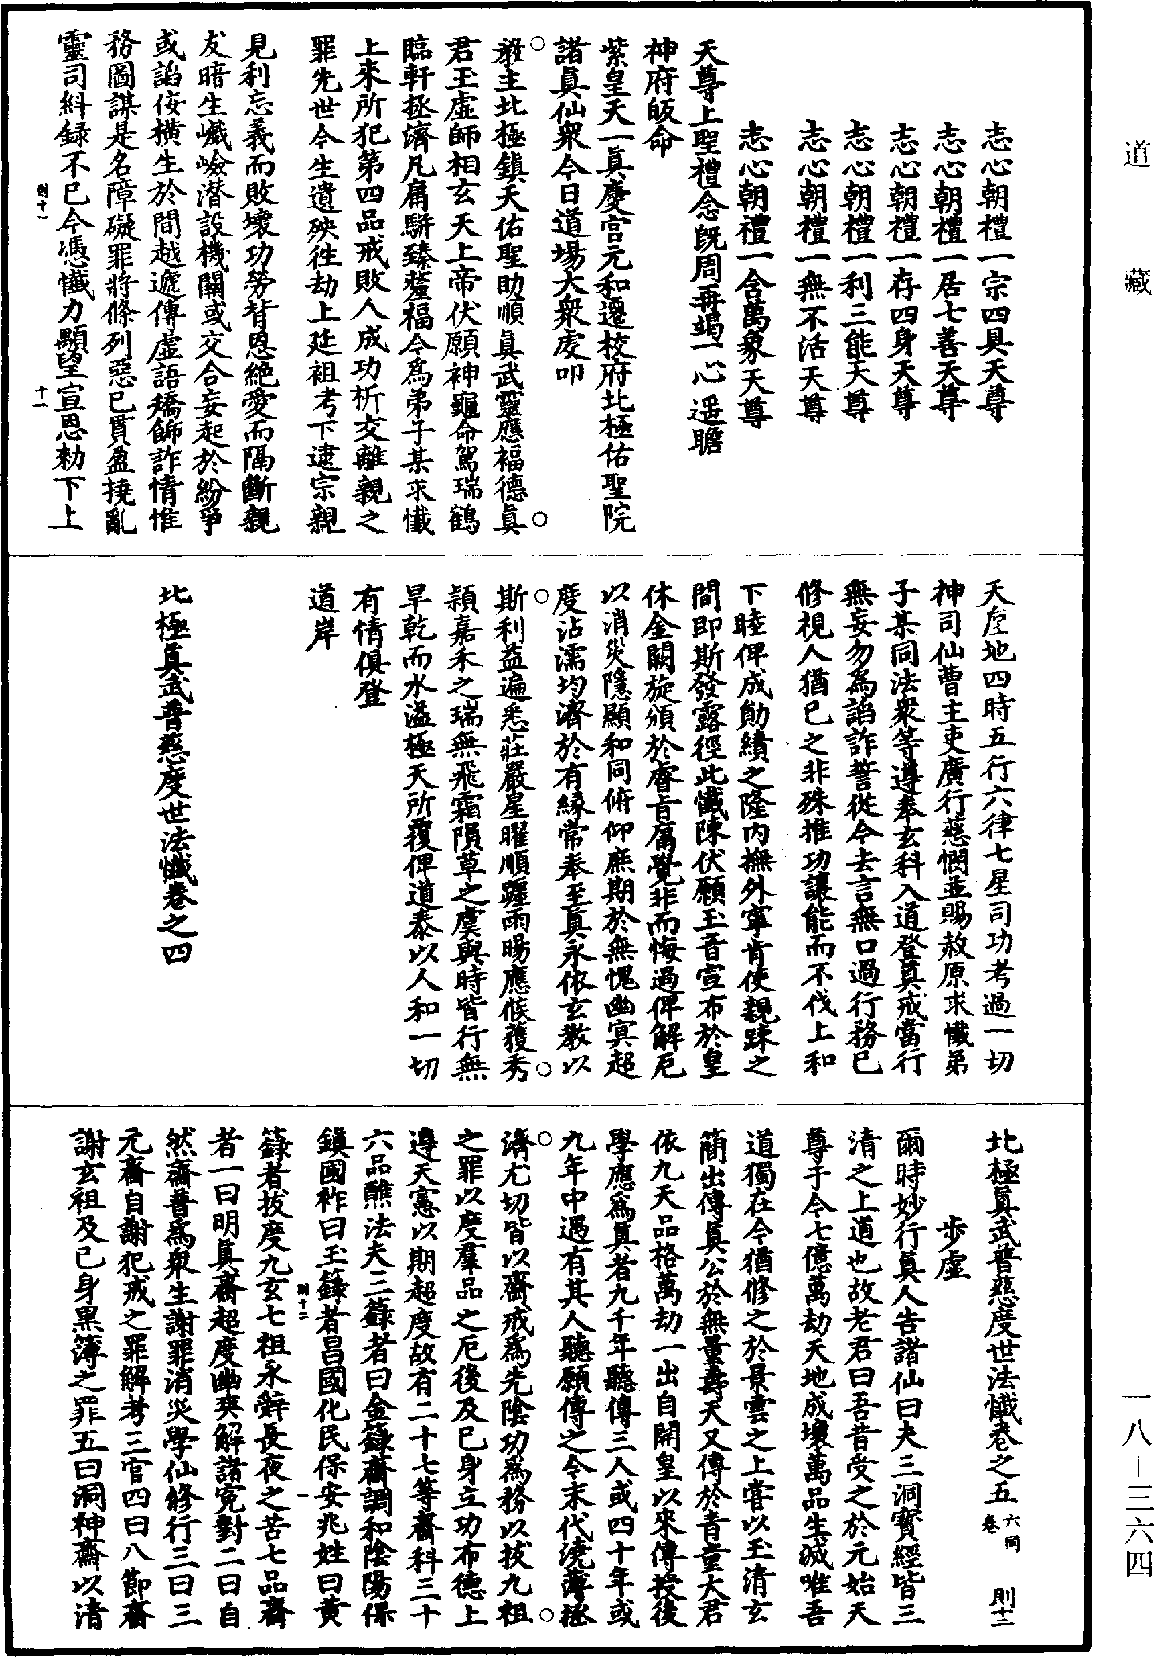 道藏
志心朝禮一宗四具天尊
志心朝禮一居七善天尊
志心朝禮一存四身天尊
志心朝禮一利三能天尊
志心朝禮一無不活天尊
志心朝禮一含萬象天尊
天尊上聖禮念既周再竭一心遥瞻
神府皈命
紫皇天一真慶宫元和遷校府北極佑聖院
諸真仙衆今日道場大衆虔叩
○
○
教主北極鎮天佑聖助順真武靈應福德真
君玉虛師相玄天上帝伏願神龜命駕瑞鶴
臨軒拯濟凡庸駢臻蓬福今為弟子某求懺
上來所犯第四品戒敗人成功析交離親之
罪先世今生遺殃徃劫上延祖考下逮宗親
見利忘義而敗壞功勞背恩絶愛而隔斷親
友暗生巇嶮潜設機關或交合妄起於紛爭
或諂佞横生於間越遞傳虛語矯飾詐情惟
務圖謀是名障礙罪將條列惡已貫盈撓亂
靈司糾録不已今憑懺力顒望宣恩勑下上
則十一
十一
天虛地四時五行六律七星司功考過一切
神司仙曹主吏廣行慈憫並賜赦原求懺弟
子某同法衆等遵奉玄科入道登真戒當行
無妄勿為諂詐誓從今去言無口過行務已
修視人猶已之非殊推功讓能而不伐上和
下睦俾成勛績之隆内撫外寧肯使親踈之
間即斯發露徑此懺陳伏願玉音宣布於皇
休金闕旋頒於睿旨庸覺非而悔過俾解厄
以消災隱顯和同俯仰庶期於無愧幽冥超
度沾濡均濟於有緣常奉至真永依玄教以
○
○
斯利益遍悉莊嚴星曜順躔雨暘應候獲秀
頴嘉禾之瑞無飛霜隕草之虞與時皆行無
旱乾而水溢極天所覆俾道泰以人和一切
有情俱登
道岸
北極真武普慈度世法懺卷之四
北極真武普慈度世法懺卷之五
六同卷
則十二
步虛
爾時妙行真人告諸仙曰夫三洞寶經皆三
清之上道也故老君曰吾昔受之於元始天
尊于今七億萬劫天地成壞萬品生滅唯吾
道獨在今猶修之於景雲之上嘗以玉清玄
蕳出傳真公於無量壽天又傳於青童大君
依九天品格萬劫一出自開皇以來傳授後
學應為真者九千年聽傳三人或四十年或
九年中遇有其人聽願傳之今末代澆薄拯
○
○
濟尤切皆以齋戒為先陰功為務以拔九祖
之罪以度羣品之厄後及已身立功布德上
遵天憲以期超度故有二十七等齋科三十
六品醮法夫三籙者曰金籙齋調和陰陽保
鎮國祚曰玉籙者昌國化民保安兆姓曰黄
則十二
一
籙者拔度九玄七祖永辭長夜之苦七品齋
者一曰明真齋超度幽爽解諸寃對二曰自
然齋普為衆生謝罪消災學仙修行三曰三
元齋自謝犯戒之罪解考三官四曰八節齋
謝玄祖及已身黒簿之罪五曰洞神齋以清
一八—三六四